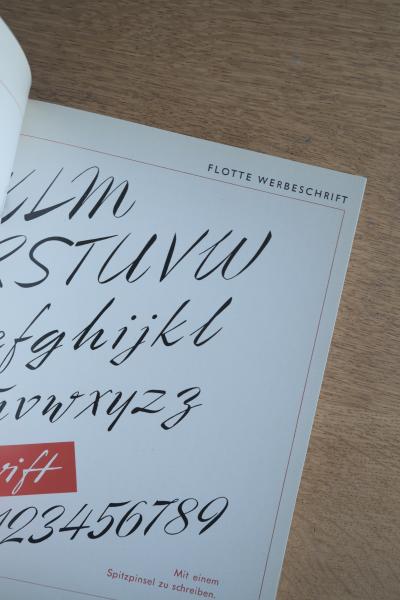 FLOTTE WERBESCHRIFT
KLM
RSTUVW
efghijkl
uvwxyzz
rift
123456789
Mit einem
Spitzpinsel zu schreiben.